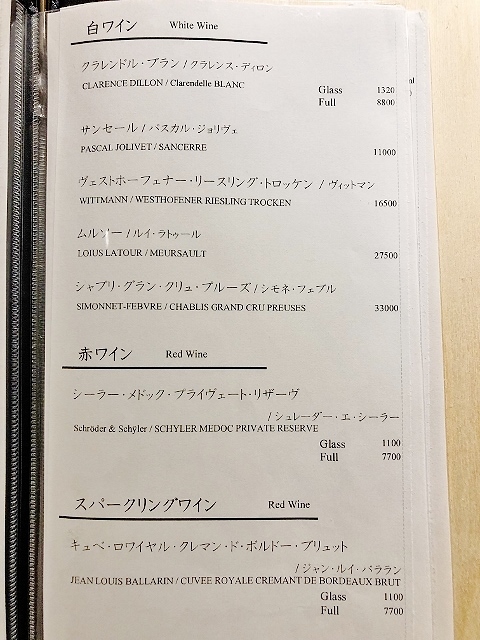 白ワイン White Wine
クラレンドル・ブラン / クラレンス・ディロン
CLARENCE DILLON / Clarendelle BLANC
Glass 1320
Full 8800
サンセール / パスカル・ジョリヴェ
PASCAL JOLIVET / SANCERRE 11000
ヴェストホーフェナー・リースリング・トロッケン / ヴィットマン
WITTMANN / WESTHOFENER RIESLING TROCKEN 16500
ムルソー / ルイ・ラトゥール
LOIUS LATOUR / MEURSAULT 27500
シャブリ・グラン・クリュ・プルーズ / シモネ・フェブル
SIMONNET-FEBVRE / CHABLIS GRAND CRU PREUSES 33000
赤ワイン Red Wine
シーラー・メドック・プライヴェート・リザーヴ
/ シュレーダー・エ・シーラー
Schröder & Schÿler / SCHYLER MEDOC PRIVATE RESERVE
Glass 1100
Full 7700
スパークリングワイン Red Wine
キュベ・ロワイヤル・クレマン・ド・ボルドー・ブリュット
/ ジャン・ルイ・バララン
JEAN LOUIS BALLARIN / CUVEE ROYALE CREMANT DE BORDEAUX BRUT
Glass 1100
Full 7700